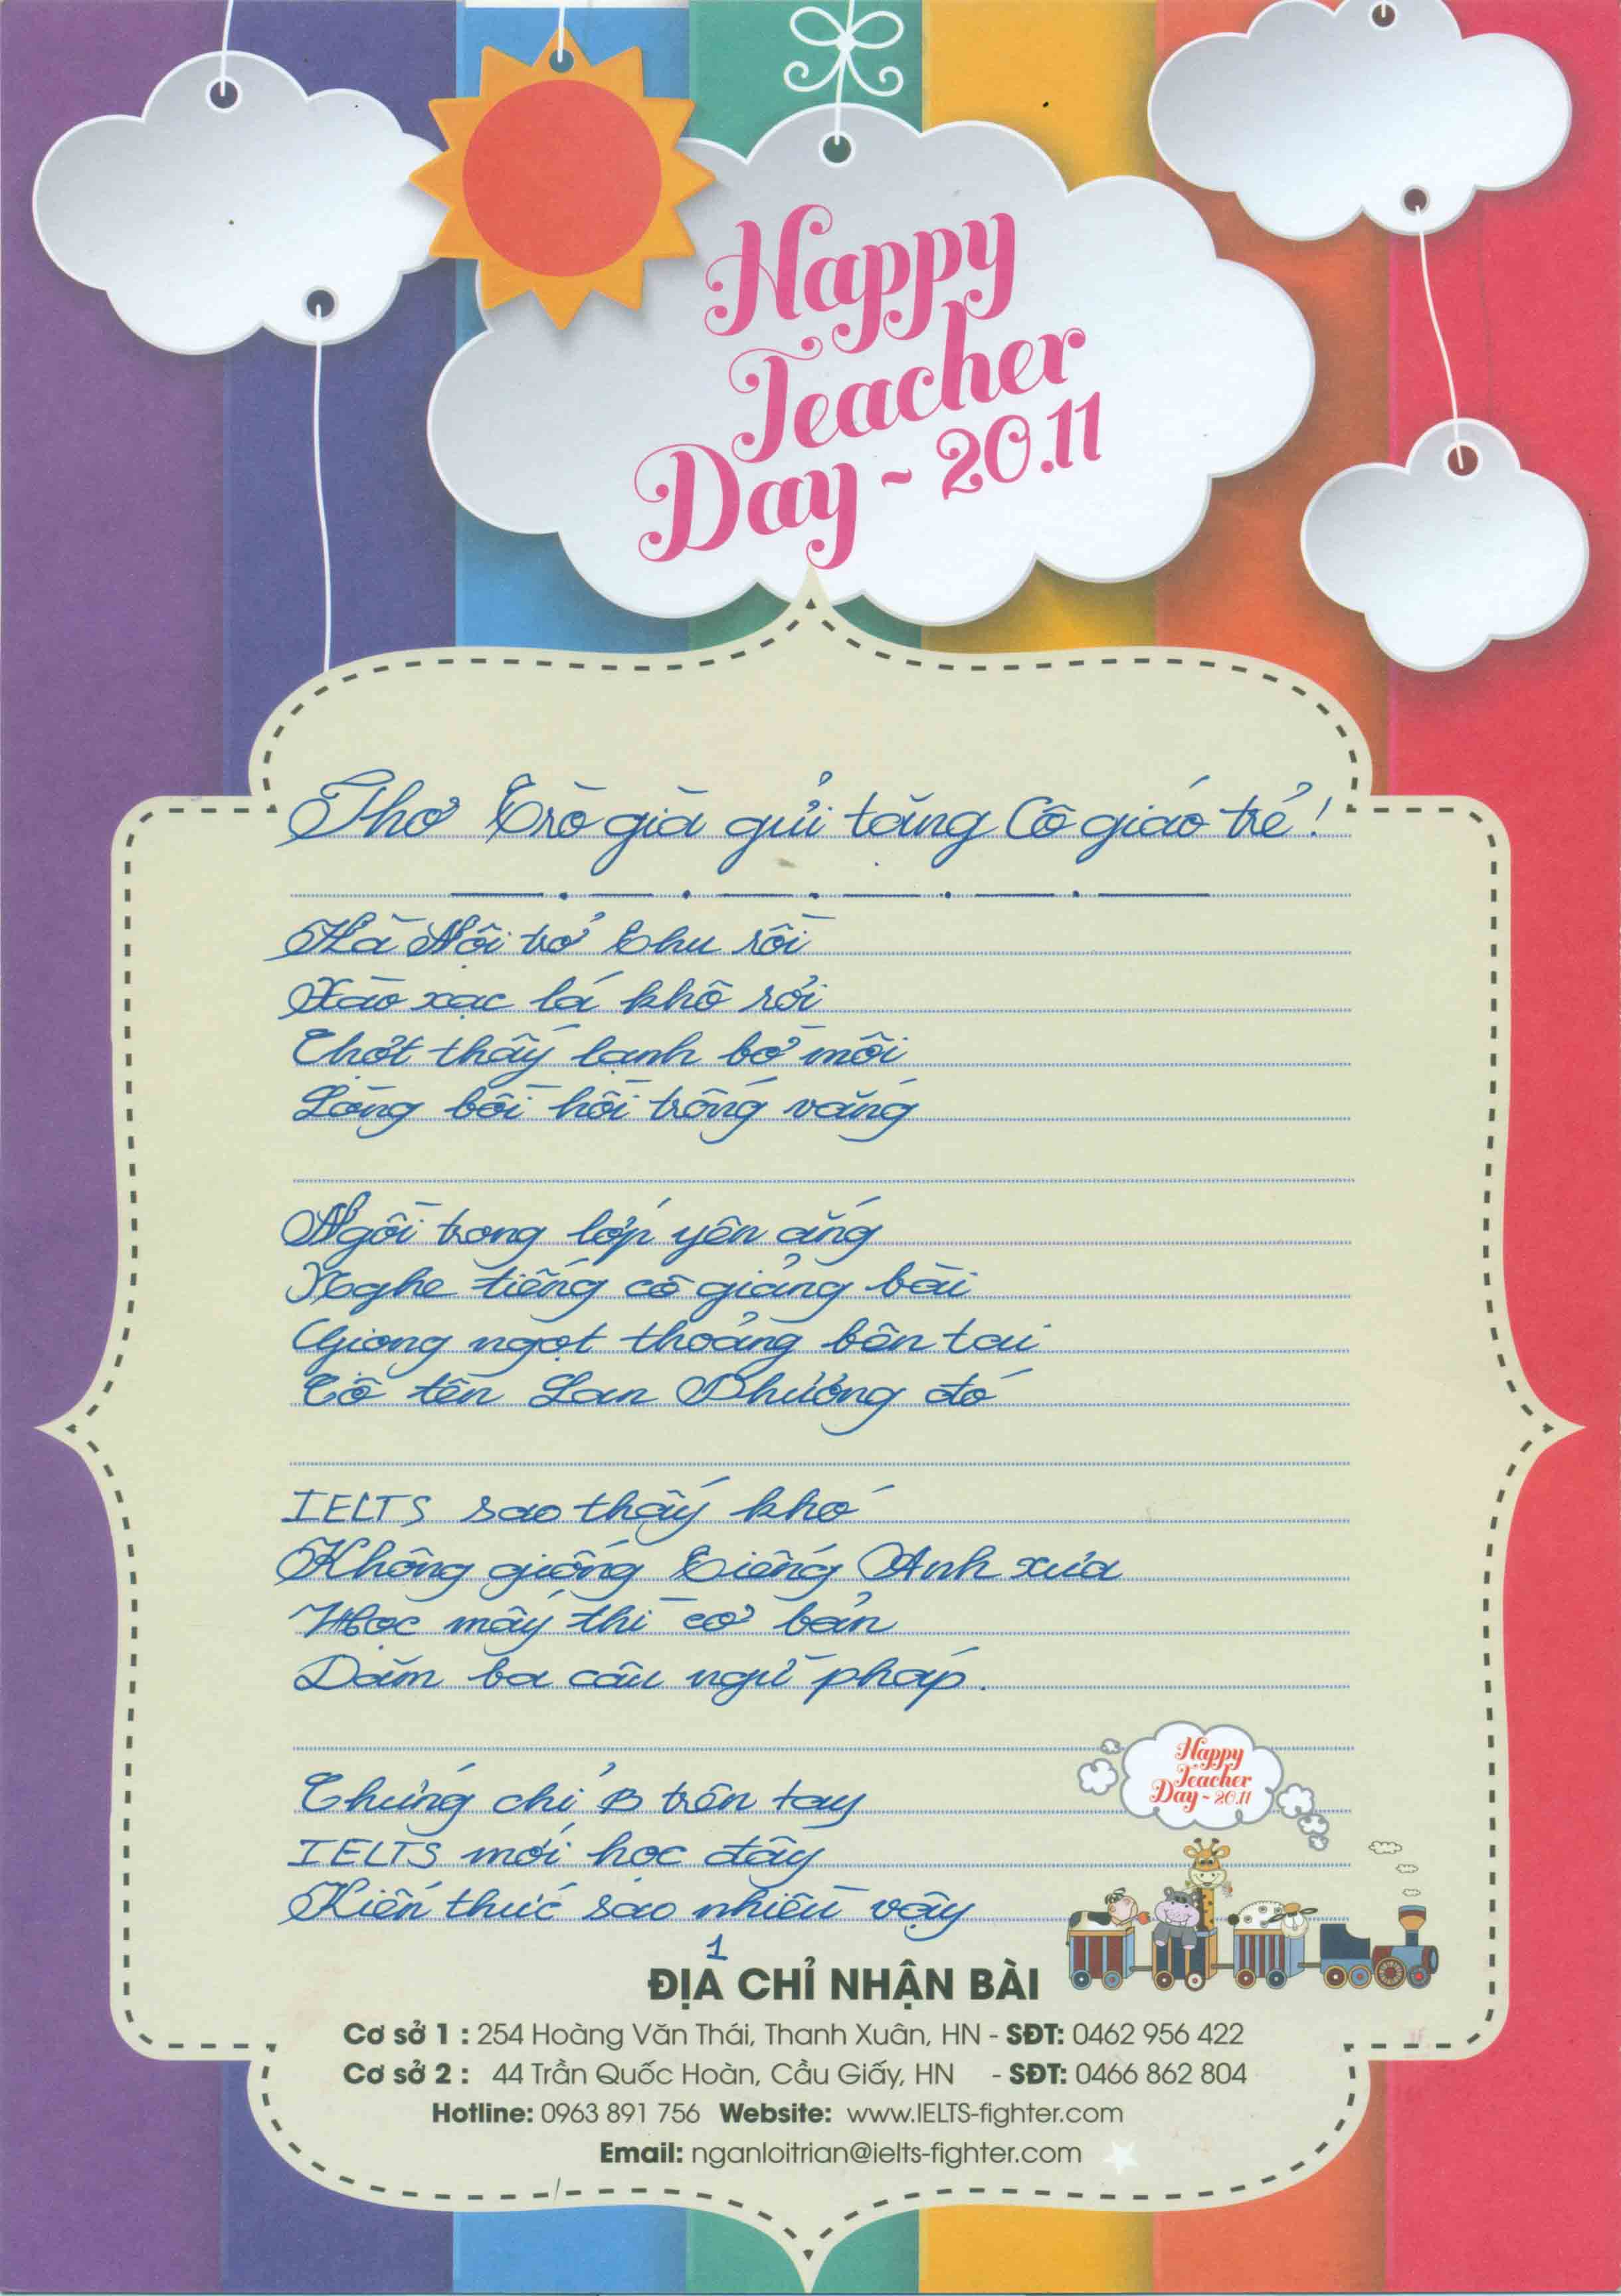 Happy
Teacher
Day ~ 20.11
Thơ Trò già gửi tặng Cô giáo trẻ!
Hà Nội trở Thu rồi
Xào xạc lá khô rơi
Chợt thấy lạnh bờ môi
Lòng bồi hồi trống vắng
Ngồi trong lớp yên ắng
Nghe tiếng cô giảng bài
Giọng ngọt thoảng bên tai
Cô tên Lan Phương đó
IELTS sao thấy khó
Không giống Tiếng Anh xưa
Học mấy thì cơ bản
Dăm ba câu ngữ pháp.
Chứng chỉ B trên tay
IELTS mới học đây
Kiến thức sao nhiều vậy
Happy
Teacher
Day ~ 20.11
1
ĐỊA CHỈ NHẬN BÀI
Cơ sở 1 : 254 Hoàng Văn Thái, Thanh Xuân, HN - SĐT: 0462 956 422
Cơ sở 2 : 44 Trần Quốc Hoàn, Cầu Giấy, HN - SĐT: 0466 862 804
Hotline: 0963 891 756 Website: www.IELTS-fighter.com
Email: nganloitrian@ielts-fighter.com